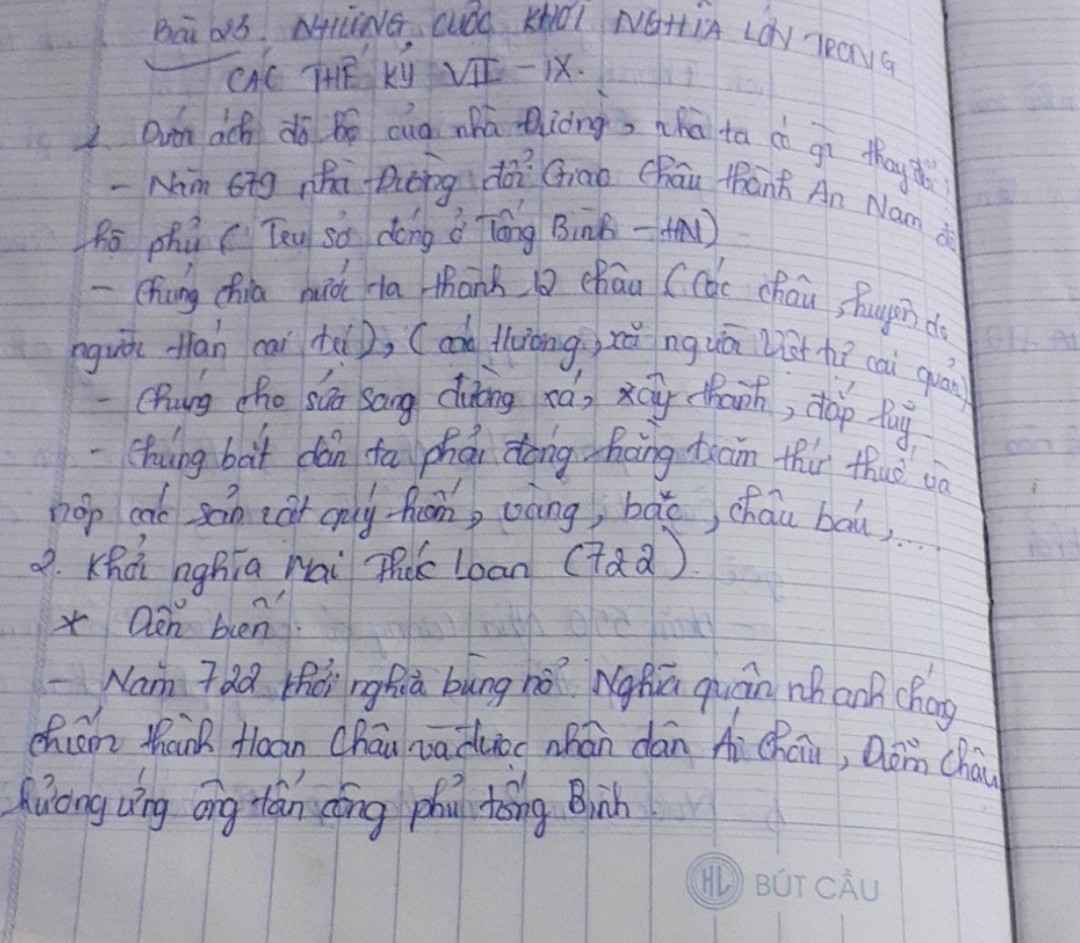 Bài 23. NHỮNG CUỘC KHỞI NGHĨA LỚN TRONG
CÁC THẾ KỶ VII - IX.
1. Dưới ách đô hộ của nhà Đường, nhà ta có gì thay đổi
- Năm 679 nhà Đường đổi Giao Châu thành An Nam đô
hộ phủ ( Trụ sở đóng ở Tống Bình - HN)
- Chúng chia nước ta thành 12 châu (Các châu, huyện do
người Hán cai trị), ( các Hương, xã người Việt tự cai quản)
- Chúng cho sửa sang đường xá, xây thành, đắp luỹ
- Chúng bắt dân ta phải đóng hàng trăm thứ thuế và
nộp các sản vật quý hiếm, vàng, bạc, châu báu,....
2. Khởi nghĩa Mai Thúc Loan (722).
* Diễn biến.
- Năm 722 khởi nghĩa bùng nổ. Nghĩa quân nhanh chóng
chiếm thành Hoan Châu và được nhân dân Ái Châu, Diễm Châu
hưởng ứng ông tấn công phủ tống Bình.
HL BÚT CẦU